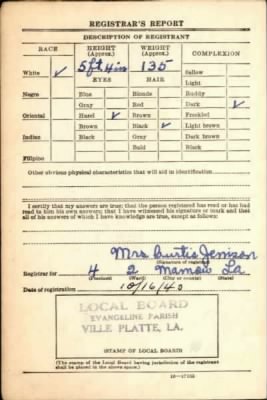 REGISTRAR'S REPORT
DESCRIPTION OF REGISTRANT
RACE HEIGHT (Approx.) WEIGHT (Approx.) COMPLEXION
5 ft 4 in 135 Sallow
White ✓ EYES HAIR Light
Negro Blue Blonde Ruddy
Gray Red Dark ✓
Oriental Hazel ✓ Brown Freckled
Brown Black ✓ Light brown
Indian Black Gray Dark brown
Bald Black
Filipino
Other obvious physical characteristics that will aid in identification
I certify that my answers are true; that the person registered has read or has had
read to him his own answers; that I have witnessed his signature or mark and that
all of his answers of which I have knowledge are true, except as follows:
Mrs. Curtis Jenison
(Signature of registrar)
Registrar for 4 2 Mamou La
(Ward) (City or county) (State)
Date of registration 10/16/40
LOCAL BOARD
EVANGELINE PARISH
VILLE PLATTE, LA.
(STAMP OF LOCAL BOARD)
(The stamp of the Local Board having jurisdiction of the registrant
shall be placed in the above space.)